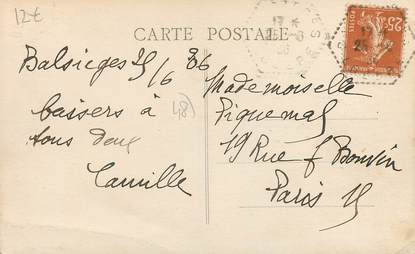 12€
CARTE POSTALE
Balsièges 25/6 36
baisers à
tous deux
Camille
48)
Mademoiselle
Piquemal
19 Rue f Bonvin
Paris 15
25c
POSTES